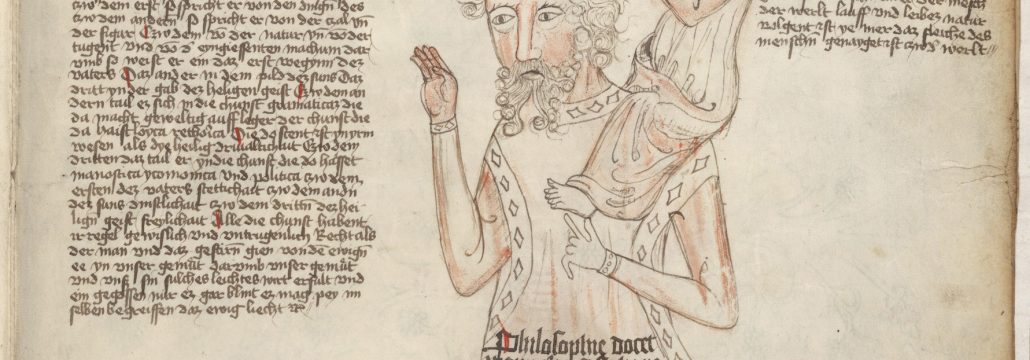 czw dem erst so spricht er von den dingn des
czw dem andern so spricht er von der czal yn
der figur Czw dem vo der natur yn vo der
tugent und vo d eyngiesenten machum dar
umb so weist er ein daz erst wegynn dez
vaters Daz ander in dem pild dez suns Daz
drat yn der gab dez heiligen geist Czw dem an
dern tail er sich in die chunst gramaticaz die
da macht geweltig ausfleger der chunst die
da haist loyca rethorica Die do stent ist yn yrm
wesen als dye heilig drivaltichait Czw dem
dritten daz tail er yn die chunst die do hasset
manostica yconomica und politica czw dem
ersten dez vaters stettichait czw dem andn
dez suns dinstlichait czw dem drittn dez hei
lign geist freylichait Alle die chunst habent
ir regel gewislich und untrugenlich Recht als
der man und daz gestirn gien von den ewign
ee yn unser gemut darumb unser gemut
und unser sin sulches leichtes wirt erfult und
ein gegossen nur ez gar blint ez mag pey im
selben begreiffen daz ewig liecht
der mesch
der werlt lauff und leibez natur
volgent ist ye mer daz fleische des
menschn genayget ist czw d werlt
Philosophye docet